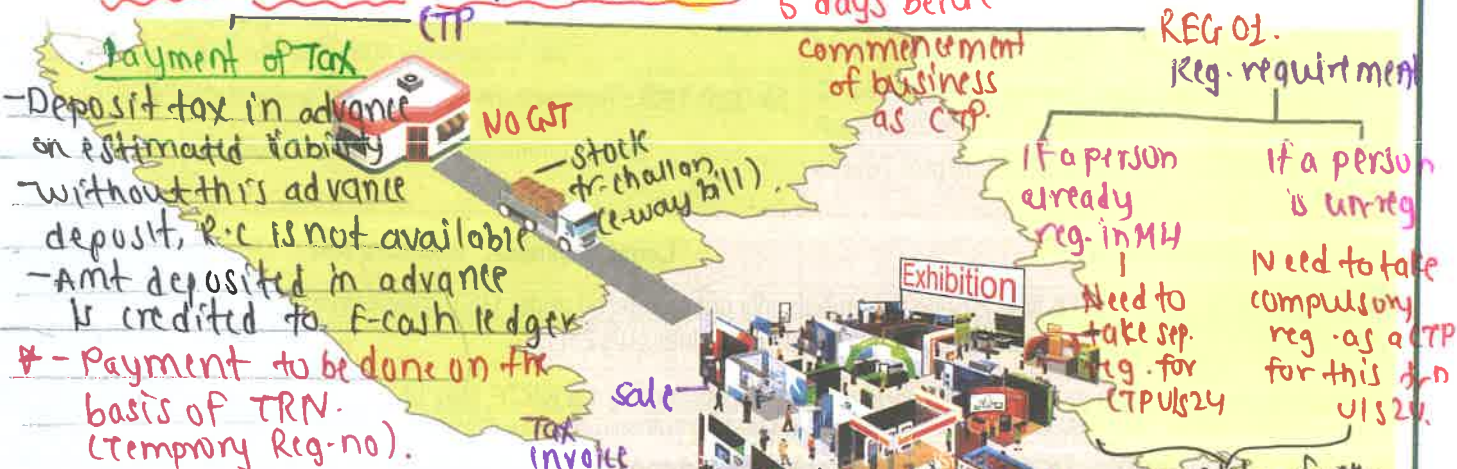 CTP
5 days before
commencement
of business
as CTP.
REG 01.
Reg. requirement
Payment of Tax
-Deposit tax in advance
on estimated liability
-without this advance
deposit, R.C is not available
-Amt deposited in advance
is credited to E-cash ledger
* - Payment to be done on the
basis of TRN.
(Temprory Reg-no).
NO GST
-stock
tr. challan
(e-way bill).
Exhibition
sale-
Tax
invoice
If a person
already
reg. in MH
Need to
take sep.
reg. for
CTP U/s 24
If a person
is un-reg
Need to take
compulsory
reg. as a CTP
for this
U/s 24.